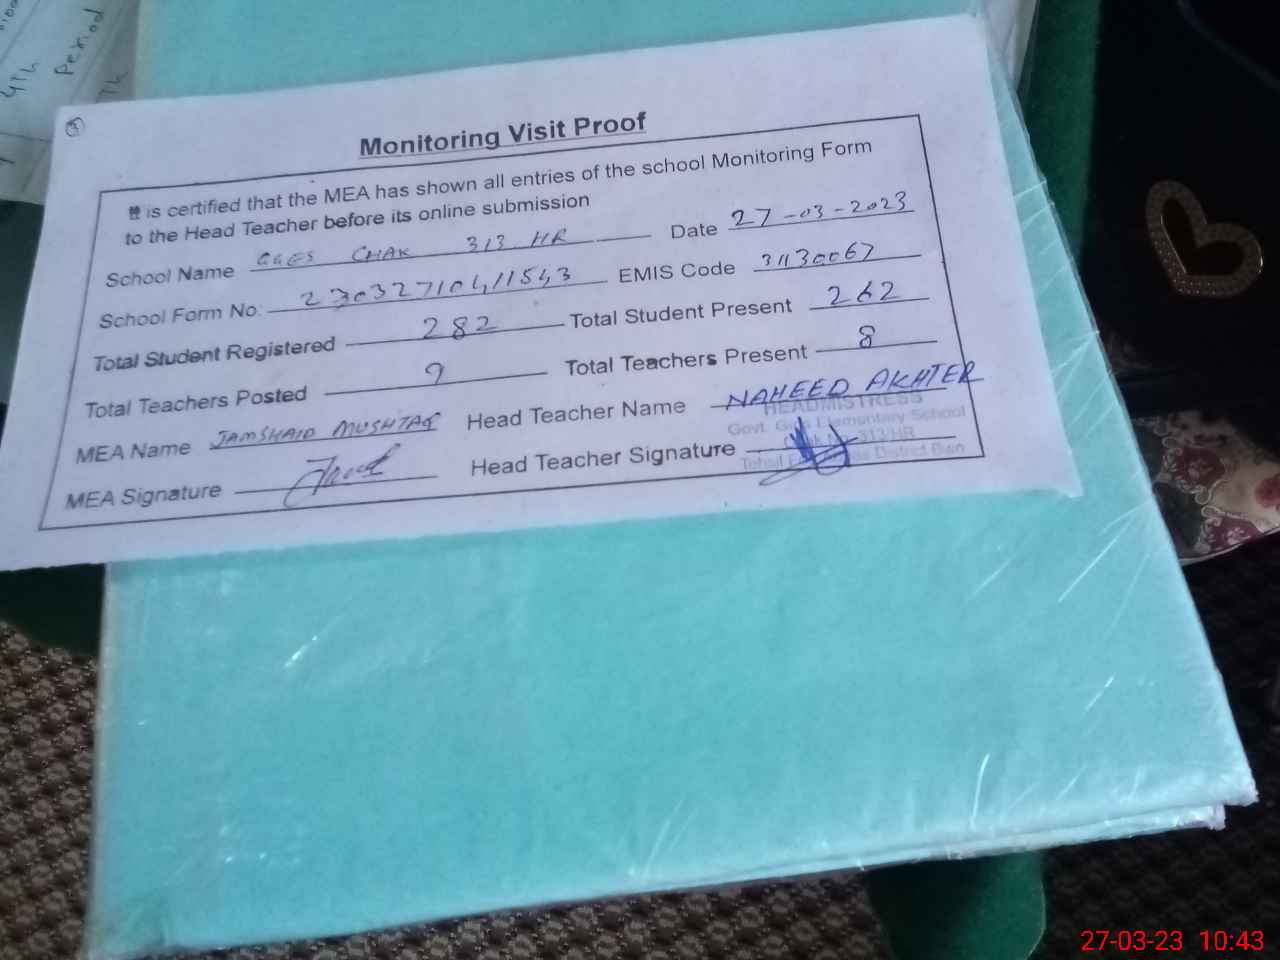 4Th
Period
Monitoring Visit Proof
It is certified that the MEA has shown all entries of the school Monitoring Form
to the Head Teacher before its online submission
School Name GGES CHAK 313 HR Date 27-03-2023
School Form No: EMIS Code 31130067
Total Student Registered 282 Total Student Present 262
Total Teachers Posted 9 Total Teachers Present 8
MEA Name JAMSHAID MUSHTAQ Head Teacher Name NAHEED AKHTER
HEADMISTRESS
Govt. Girls Elementary School
313/HR
MEA Signature Head Teacher Signature
Tehsil District Bwn
27-03-23 10:43